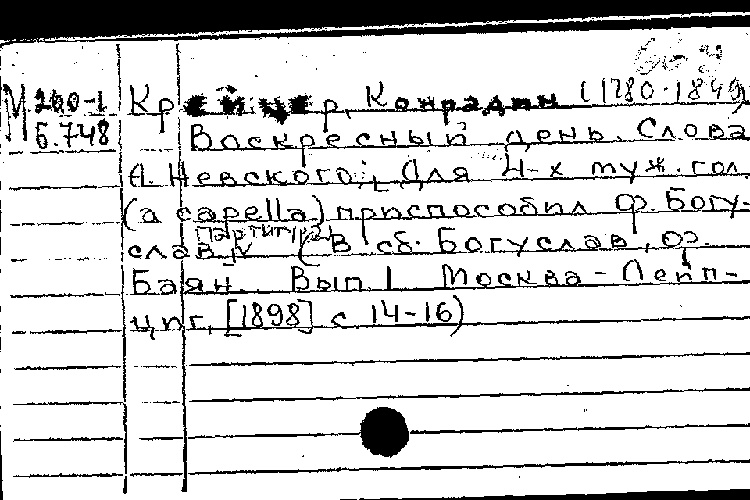 М 260-1 Крейцер, Конрадин (1780-1849)
Б.748 Воскресный день. Слова
А. Невского; Для 4-х муж. гол.
(a capella) приспособил Ф. Богу-
слав [Партитура] (В сб. Богуслав, Ф.
Баян. Вып. 1 Москва - Лейп-
циг, [1898] с 14-16)